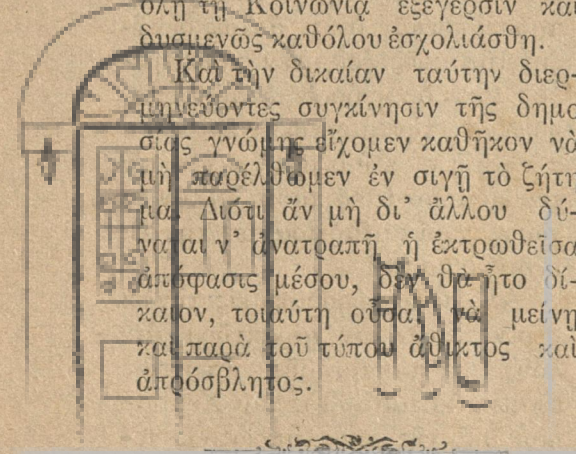 ὅλῃ τῇ Κοινωνίᾳ ἐξέγερσιν καὶ
δυσμενῶς καθόλου ἐσχολιάσθη.
Καὶ τὴν δικαίαν ταύτην διερ-
μηνεύοντες συγκίνησιν τῆς δημο
σίας γνώμης εἴχομεν καθῆκον νὰ
μὴ παρέλθωμεν ἐν σιγῇ τὸ ζήτη
μα. Διότι ἄν μὴ δι' ἄλλου δύ-
ναται ν' ἀνατραπῇ ἡ ἐκτρωθεῖσα
ἀπόφασις μέσου, δὲν θὰ ἦτο δί-
καιον, τοιαύτη οὖσα, νὰ μείνῃ
καὶ παρὰ τοῦ τύπου ἄθικτος καὶ
ἀπρόσβλητος.